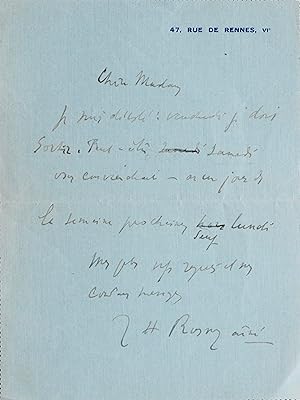 47, RUE DE RENNES, VIᵉ
Chère Madame
Je suis désolé : vendredi je dois
sortir. Peut-être, samedi
vous conviendrait – ou un jour de
la semaine prochaine hors lundi
sauf
Mes plus respectueux
J H Rosny aîné